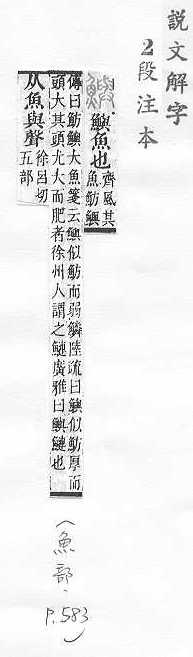 説文解字
2段注本
鱮 鱮魚也
齊風其
魚魴鱮
傳曰魴鱮大魚箋云鱮似魴而弱鱗陸疏曰鱮似魴厚而
頭大其頭尤大而肥者徐州人謂之鰱廣雅曰鱮鰱也
从魚與聲
徐呂切
五部
(魚部. P.583)